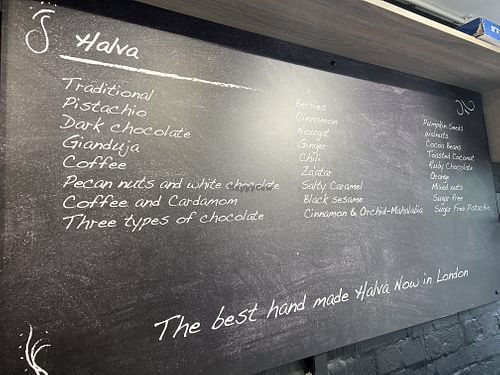 Halva
Traditional
Pistachio
Dark chocolate
Gianduja
Coffee
Pecan nuts and white chocolate
Coffee and Cardamom
Three types of chocolate
Berries
Cinnamon
Nougat
Ginger
Chili
Zaatar
Salty Caramel
Black sesame
Cinnamon & Orchid-Mahalabia
Pumpkin Seeds
Walnuts
Cocoa Beans
Toasted Coconut
Ruby Chocolate
Orange
Mixed nuts
Sugar Free
Sugar Free Pistachio
The best hand made Halva Now in London